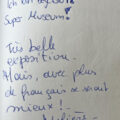 Super Museum!
Très belle
exposition.
Mais, avec plus
de français ce serait
mieux!